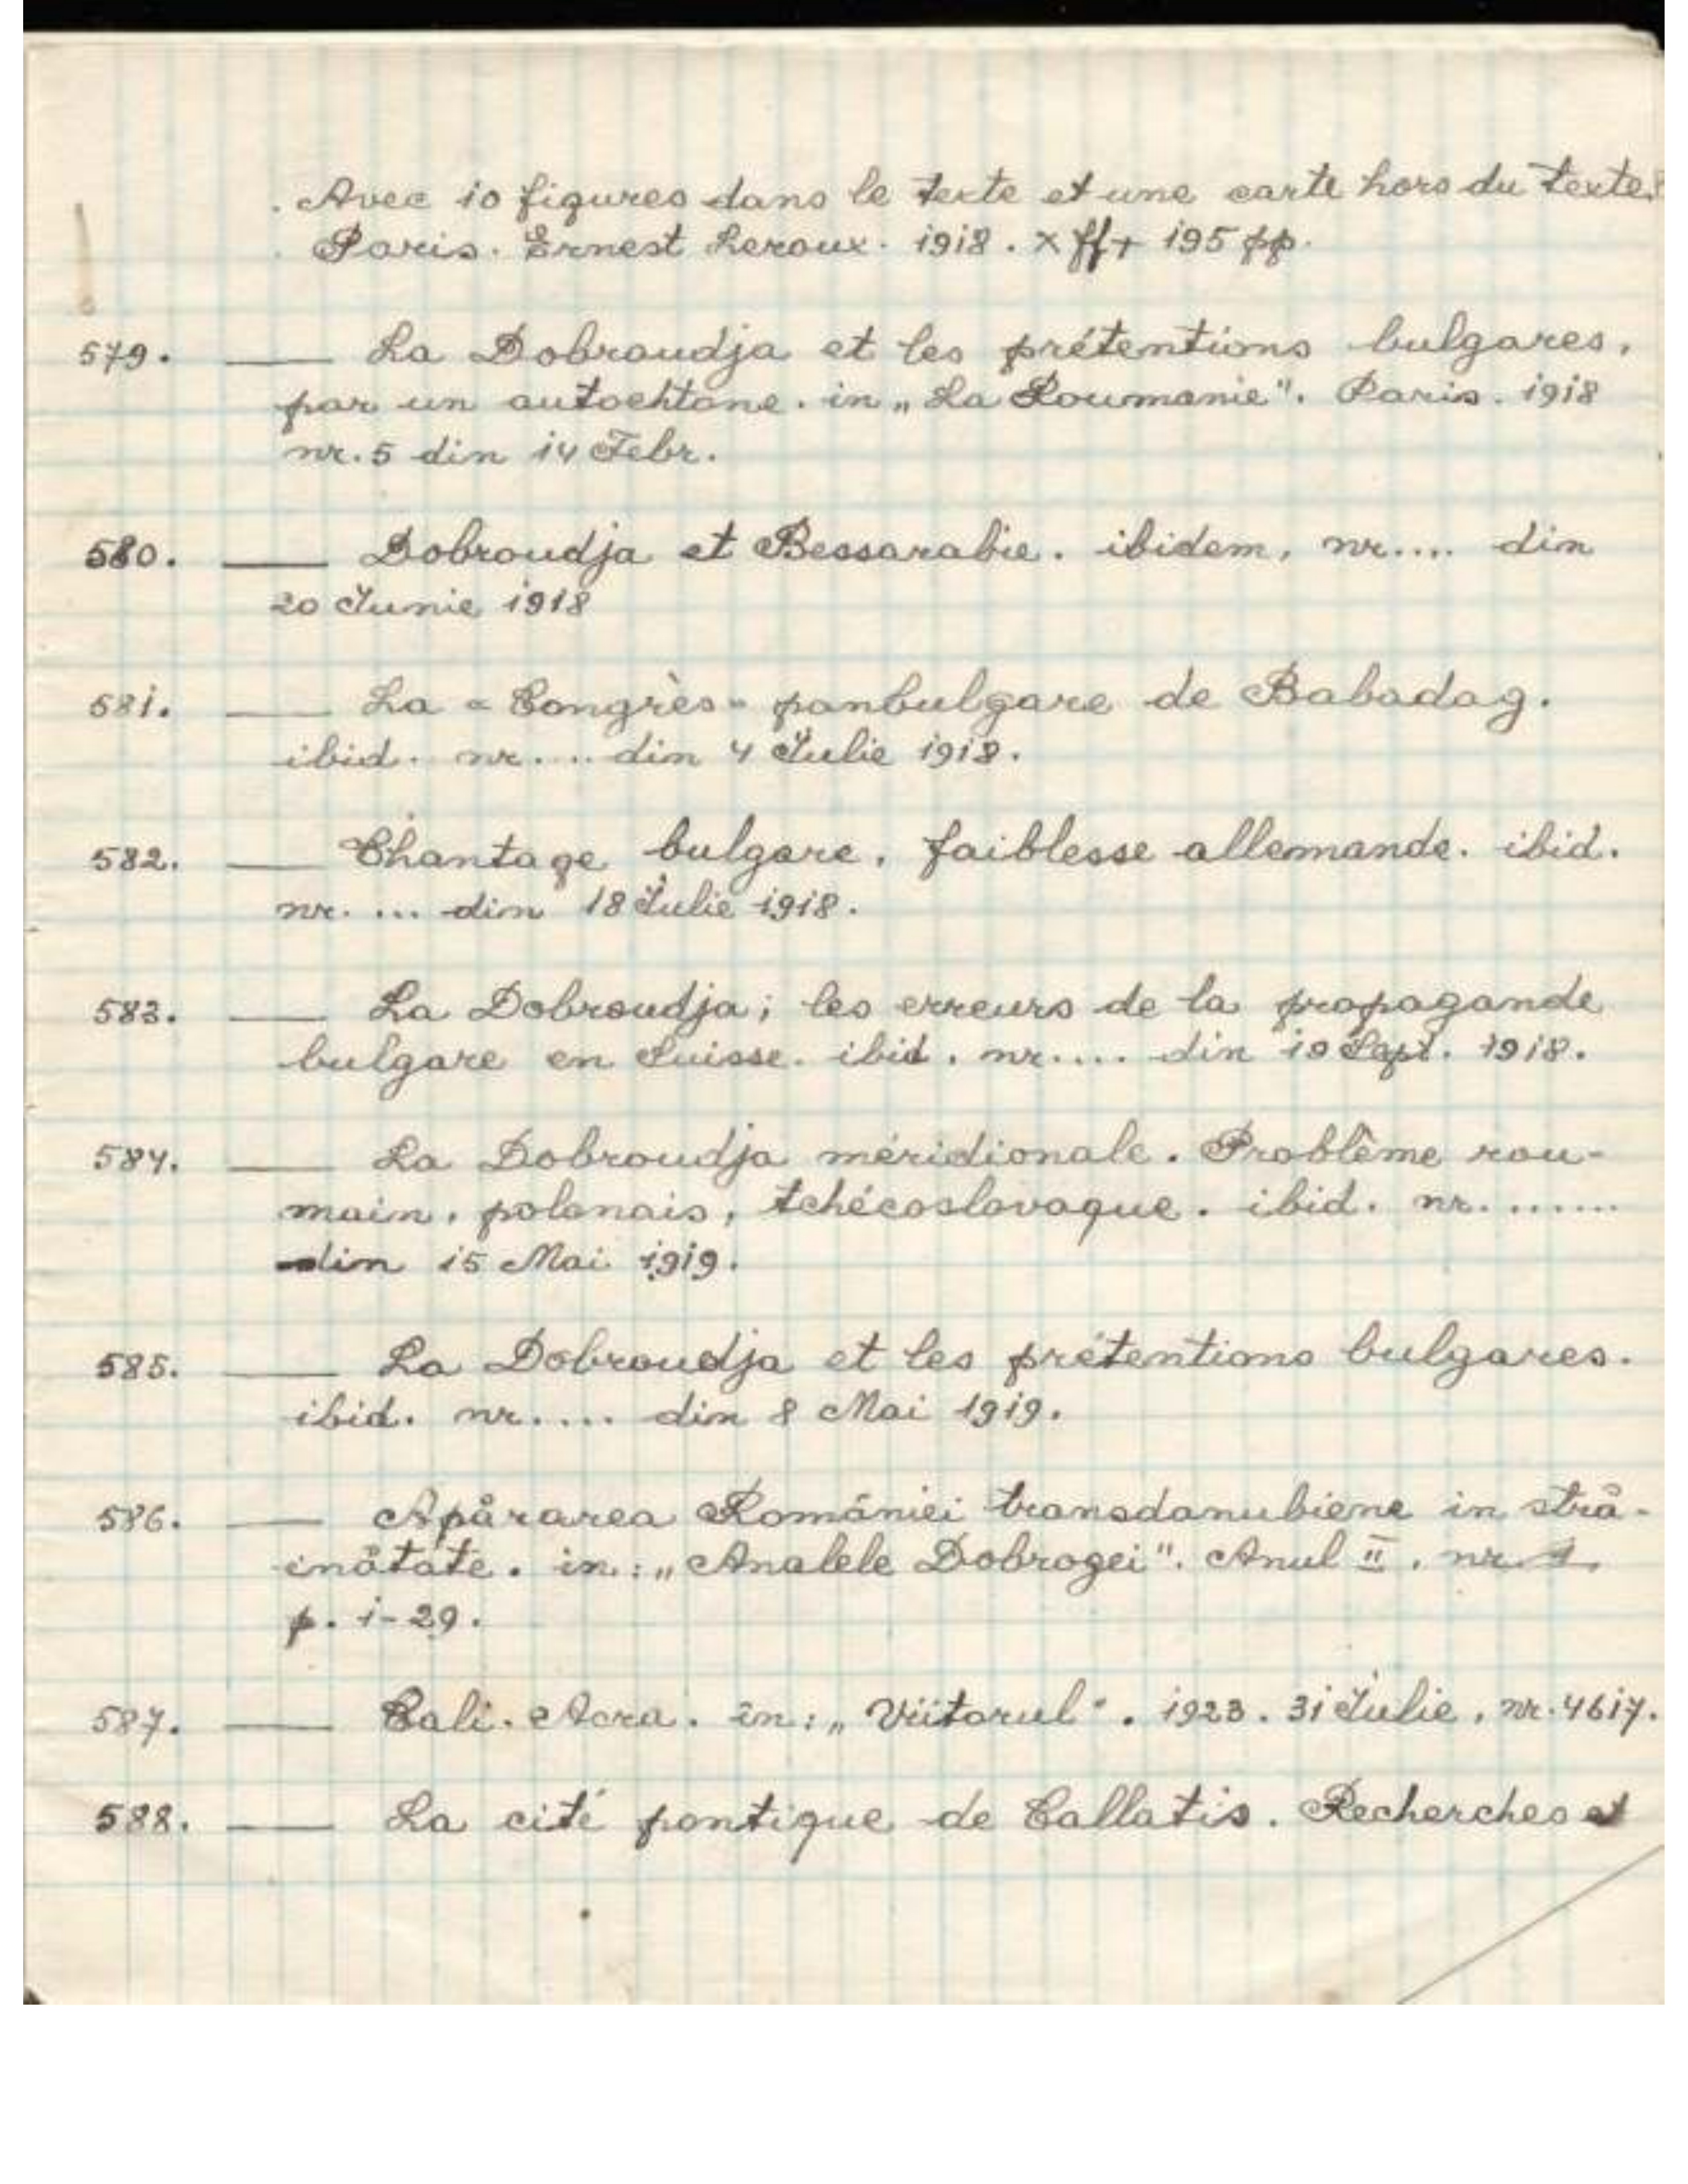 Avec 10 figures dans le texte et une carte hors du texte.
Paris. Ernest Leroux. 1918. X ff + 195 pp.
579. ___ La Dobroudja et les prétentions bulgares,
par un autochtone. in „La Roumanie". Paris. 1918
nr. 5 din 14 Febr.
580. ___ Dobroudja et Bessarabie. ibidem, nr.... din
20 Iunie 1918
581. ___ La «Congrès» panbulgare de Babadag.
ibid. nr.... din 4 Iulie 1918.
582. ___ Chantage bulgare, faiblesse allemande. ibid.
nr. ... din 18 Iulie 1918.
583. ___ La Dobroudja; les erreurs de la propagande
bulgare en Suisse. ibid. nr.... din 19 Sept. 1918.
584. ___ La Dobroudja méridionale. Problême rou-
main, polonais, tchécoslovaque. ibid. nr.......
din 15 Mai 1919.
585. ___ La Dobroudja et les prétentions bulgares.
ibid. nr.... din 8 Mai 1919.
586. ___ Apărarea României transdanubiene in stră-
inătate. in: „Analele Dobrogei". Anul II, nr. 1.
p. 1-29.
587. ___ Cali-Acra. in: „Viitorul". 1923. 31 Iulie, nr. 4617.
588. ___ La cité pontique de Callatis. Recherches et